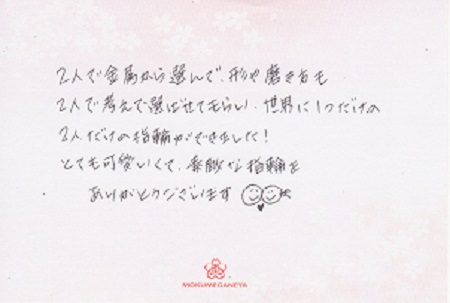 2人で金属から選んで、形や磨き方も
2人で考えて選ばせてもらい、世界に1つだけの
2人だけの指輪ができました!
とても可愛いくて、素敵な指輪を
ありがとうございます
MOKUMEGANEYA